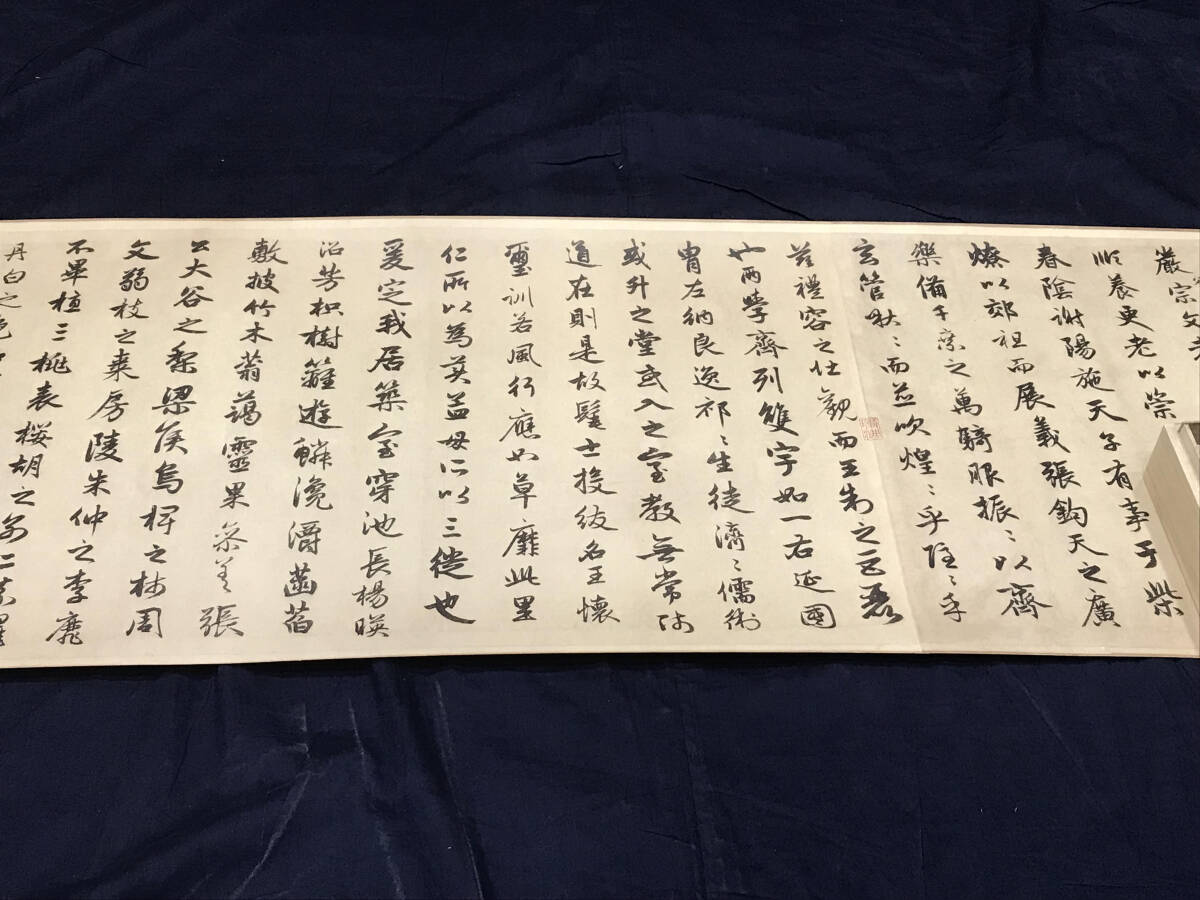 嚴宗文考
順養更老以崇
春陰謝陽施天子有事于柴
燎以郊祖而展義張鈞天之廣
樂備千乘之萬騎服振〻以齊
玄管啾〻而並吹煌〻乎隱〻乎
茲禮容之壯觀而王制之巨麗
也兩學齊列雙宇如一右延國
胄左納良逸祁〻生徒濟〻儒術
或升之堂或入之室教無常師
道在則是故髦士投紱名王懷
璽訓若風行應如草靡此里
仁所以為美孟母所以三徙也
爰定我居築室穿池長楊映
沼芳枳樹籬遊鱗瀺灂菡萏
敷披竹木蓊藹靈果參差張
公大谷之梨梁侯烏椑之柿周
文弱枝之棗房陵朱仲之李靡
不畢植三桃表櫻胡之別二柰曜
丹白之色